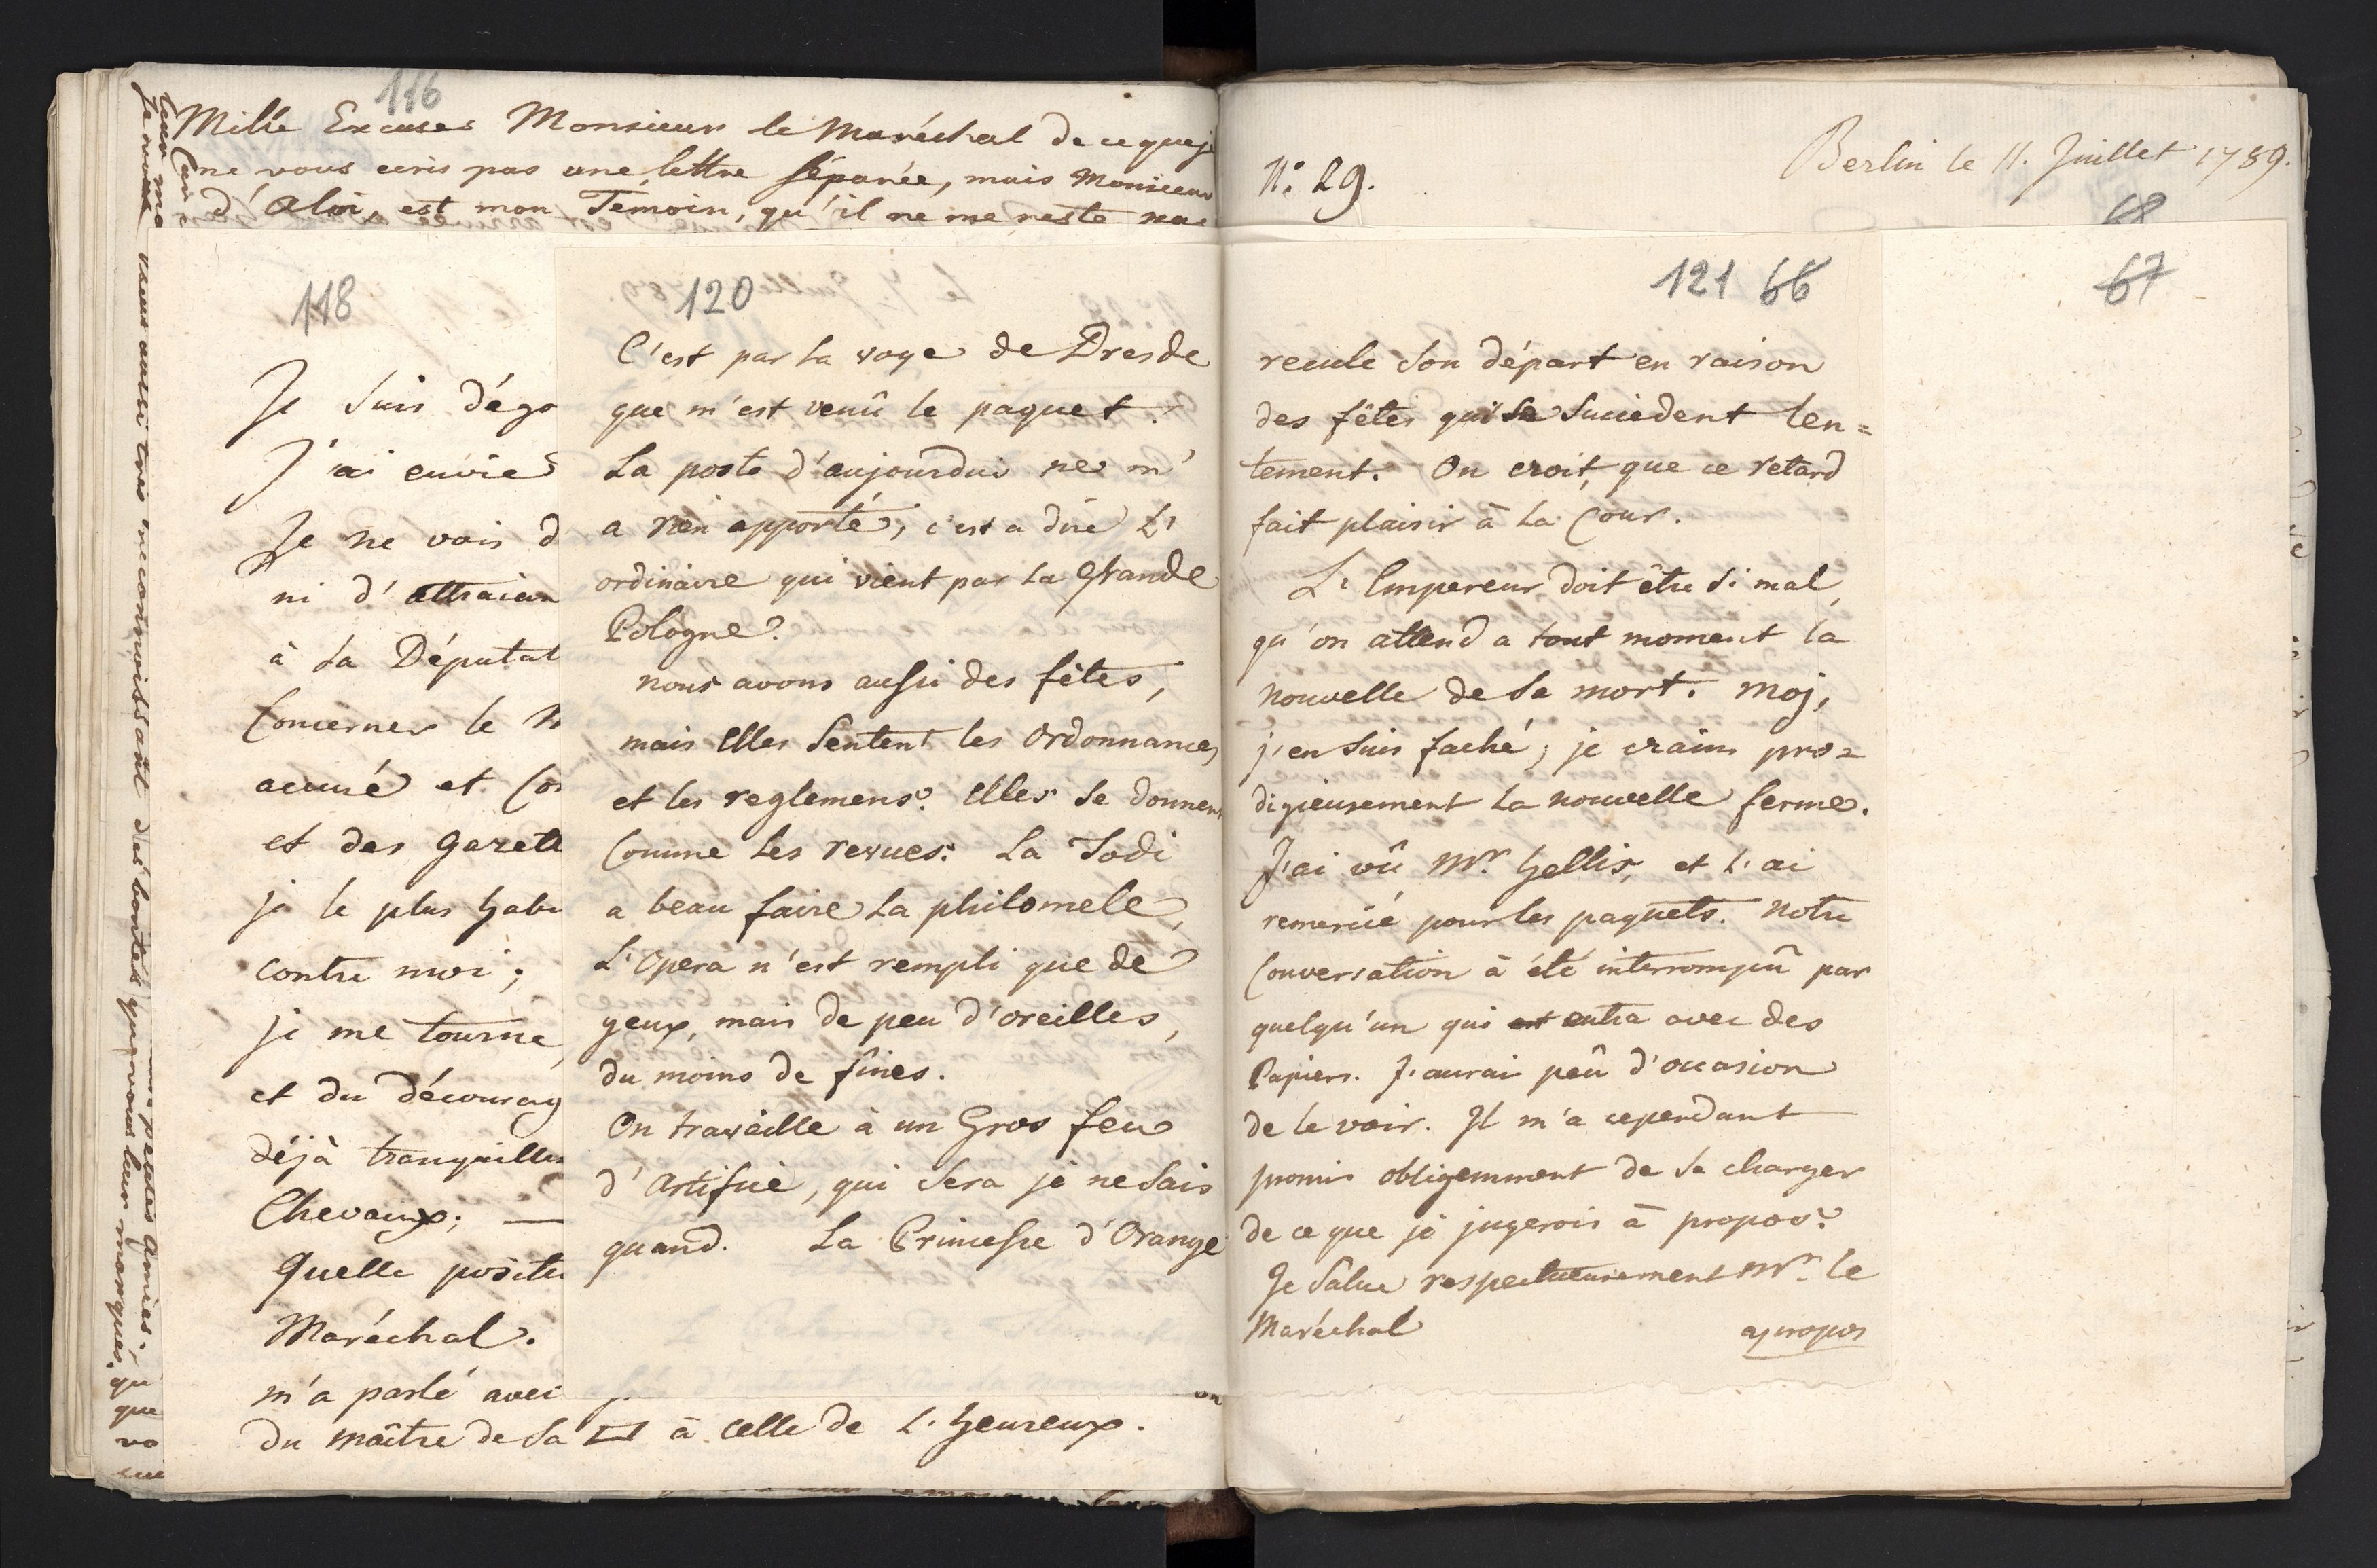 116
Mille Excuses Monsieur le Maréchal de ce que je
ne vous ecris pas une lettre séparée, mais Monsieur
d'Aloi, est mon Témoin, qu'il ne me reste
118
Je suis dégo
J'ai envie
Je ne vois d
ni d'
à la Députat
Concerner le
accusé et Co
et des gazett
je le plus hab
contre moi;
je me tourne,
et du découray
déjà tranquille
Chevaux; —
Quelle positi
Maréchal.
m'a parlé avec
du maître de la à celle de l'heureux.
120
C'est par la voye de Dresde
que m'est venû le paquet.
La poste d'aujourdui ne m'
a rien apporté; c'est a dire L'
ordinaire qui vient par la Grande
Pologne.
nous avons aussi des fêtes,
mais elles sentent les ordonnances
et les reglemens. elles se donnent
Comme les revues: La Todi
a beau faire la philomele,
L'opera n'est rempli que de
yeux, mais de peu d'oreilles,
du moins de fines.
On travaille à un Gros feu
d'artifice, qui sera je ne sais
quand. La Princesse d'Orange
vous aussi très reconnoissant des bontés que vous leur marqués, qu
petites Amies.
que
vo
N: 29.
Berlin le 11. Juillet 1789.
68
121 66
67
recule son départ en raison
des fêtes qui se succèdent len=
tement. On croit, que ce retard
fait plaisir à la Cour.
L'Empereur doit être si mal,
qu'on attend a tout moment la
nouvelle de sa mort. moj,
j'en suis faché; je crains pro=
digieusement la nouvelle ferme.
J'ai vû Mr. Hellis, et l'ai
remercié pour les paquets. Notre
Conversation à été interrompû par
quelqu'un qui est entra avec des
Papiers. J'aurai peû d'occasion
de le voir. Il m'a cependant
promis obligemment de se charger
de ce que je jugerois à propos.
Je salue respectueusement Mr. le
Maréchal
apropos